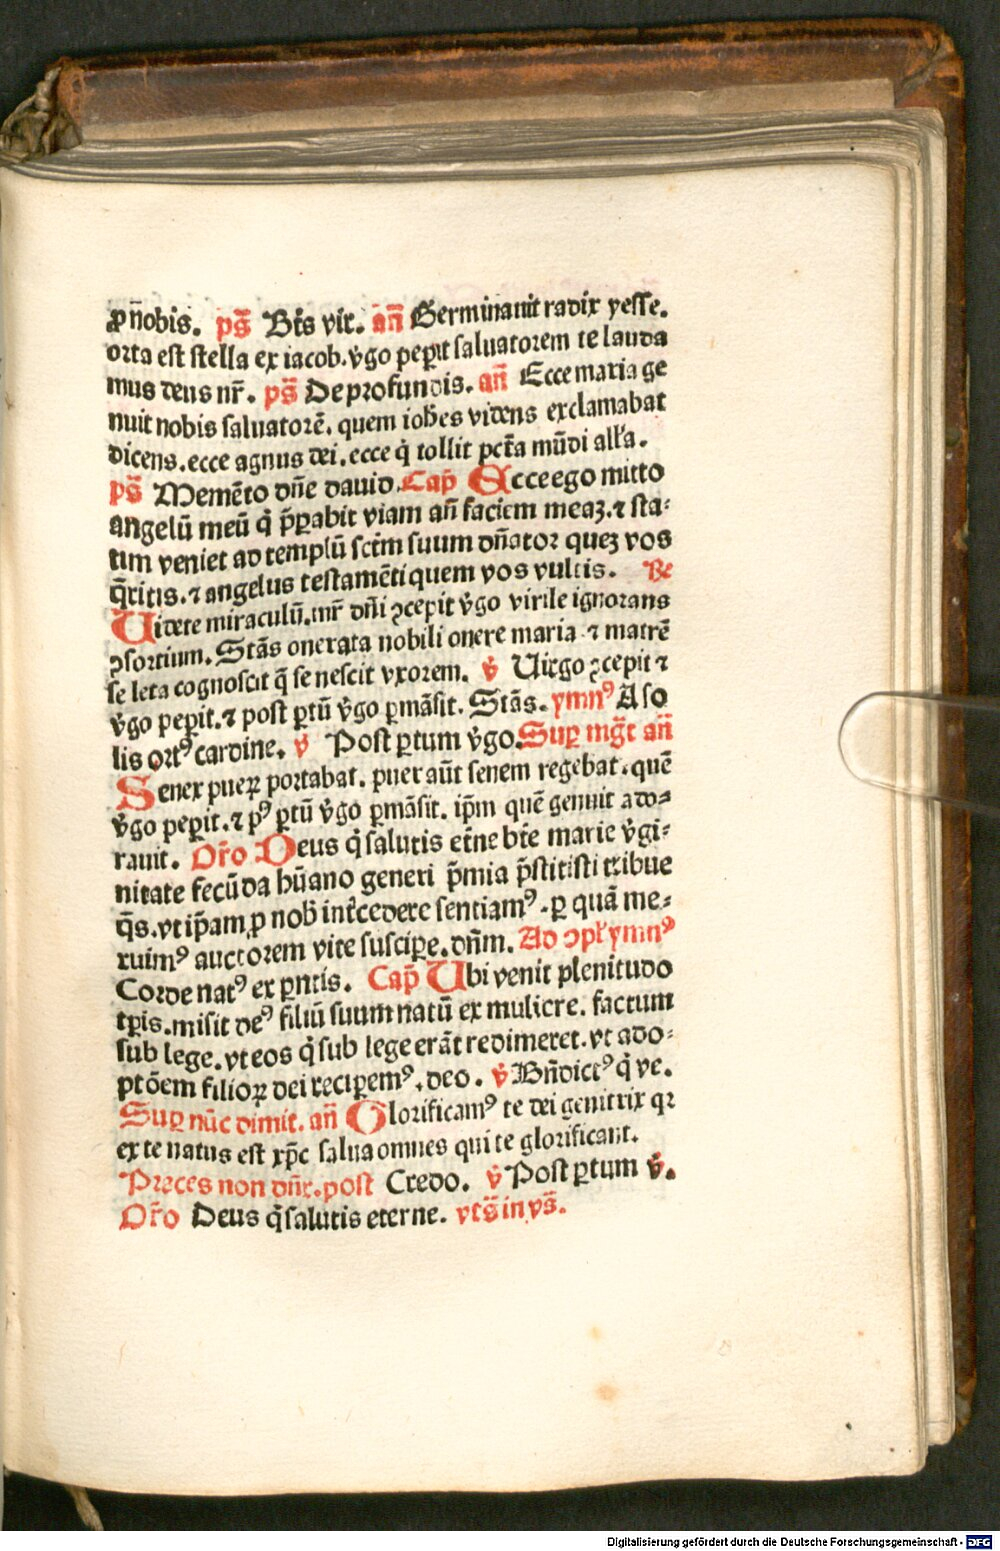 ꝓ nobis. ps̃ Bt̃s vir. añ Germinauit radix yesse.
orta est stella ex iacob. v̾go peꝑit saluatorem te lauda
mus deus nr̃. ps̃ De profundis. añ Ecce maria ge
nuit nobis saluatorē. quem ioh̃es videns exclamabat
dicens. ecce agnus dei. ecce q̇ tollit pctā mūdi all'a.
ps̃ Memēto dn̄e dauid. Cap̃ Ecce ego mitto
angelū meū q̇ p̄ꝑabit viam añ faciem meaꝫ. ⁊ sta-
tim veniet ad templū sctm̄ suum dn̄ator queꝫ vos
q̄ritis. ⁊ angelus testamēti quem vos vultis. Re
Uidete miraculū. mr̃ dn̄i ꝯcepit v̾go virile ignorans
ꝯsortium. Stās onerata nobili onere maria ⁊ matrē
se leta cognoscit q̄ se nescit vxorem. v̾ Uirgo ꝯcepit ⁊
v̾go peꝑit. ⁊ post ꝑtū v̾go ꝑmāsit. Stās. ymnꝰ A so
lis ortꝰ cardine. v̾ Post ꝑtum v̾go. Suꝑ mg̃t añ
Senex pueꝝ portabat. puer aūt senem regebat. quē
v̾go peꝑit. ⁊ pꝰ ꝑtū v̾go ꝑmāsit. ip̄m quē genuit ado-
rauit. Or̃o Deus q̇ salutis et̄ne bt̄e marie v̾gi-
nitate fecūda hūano generi p̄mia p̄stitisti tribue
q̄s. vt ip̄am ꝓ nob̾ int̾cedere sentiamꝰ. ꝑ quā me-
ruimꝰ auctorem vite susciꝑe. dn̄m. Ad ꝯpl' ymnꝰ
Corde natꝰ ex ꝑntis. Cap̃ Ubi venit plenitudo
tꝑis. misit deꝰ filiū suum natū ex muliere. factum
sub lege. vt eos q̇ sub lege erāt redimeret. vt ado-
ptōem filioꝝ dei reciꝑemꝰ. deo. v̾ Bn̄dictꝰ q̇ ve.
Suꝑ nūc dimit. añ Glorificamꝰ te dei genitrix qꝛ
ex te natus est xp̄c salua omnes qui te glorificant.
Preces non dn̄r. post Credo. v̾ Post ꝑtum v̾.
Or̃o Deus q̇ salutis eterne. vts̃ in vs̃.
Digitalisierung gefördert durch die Deutsche Forschungsgemeinschaft - DFG